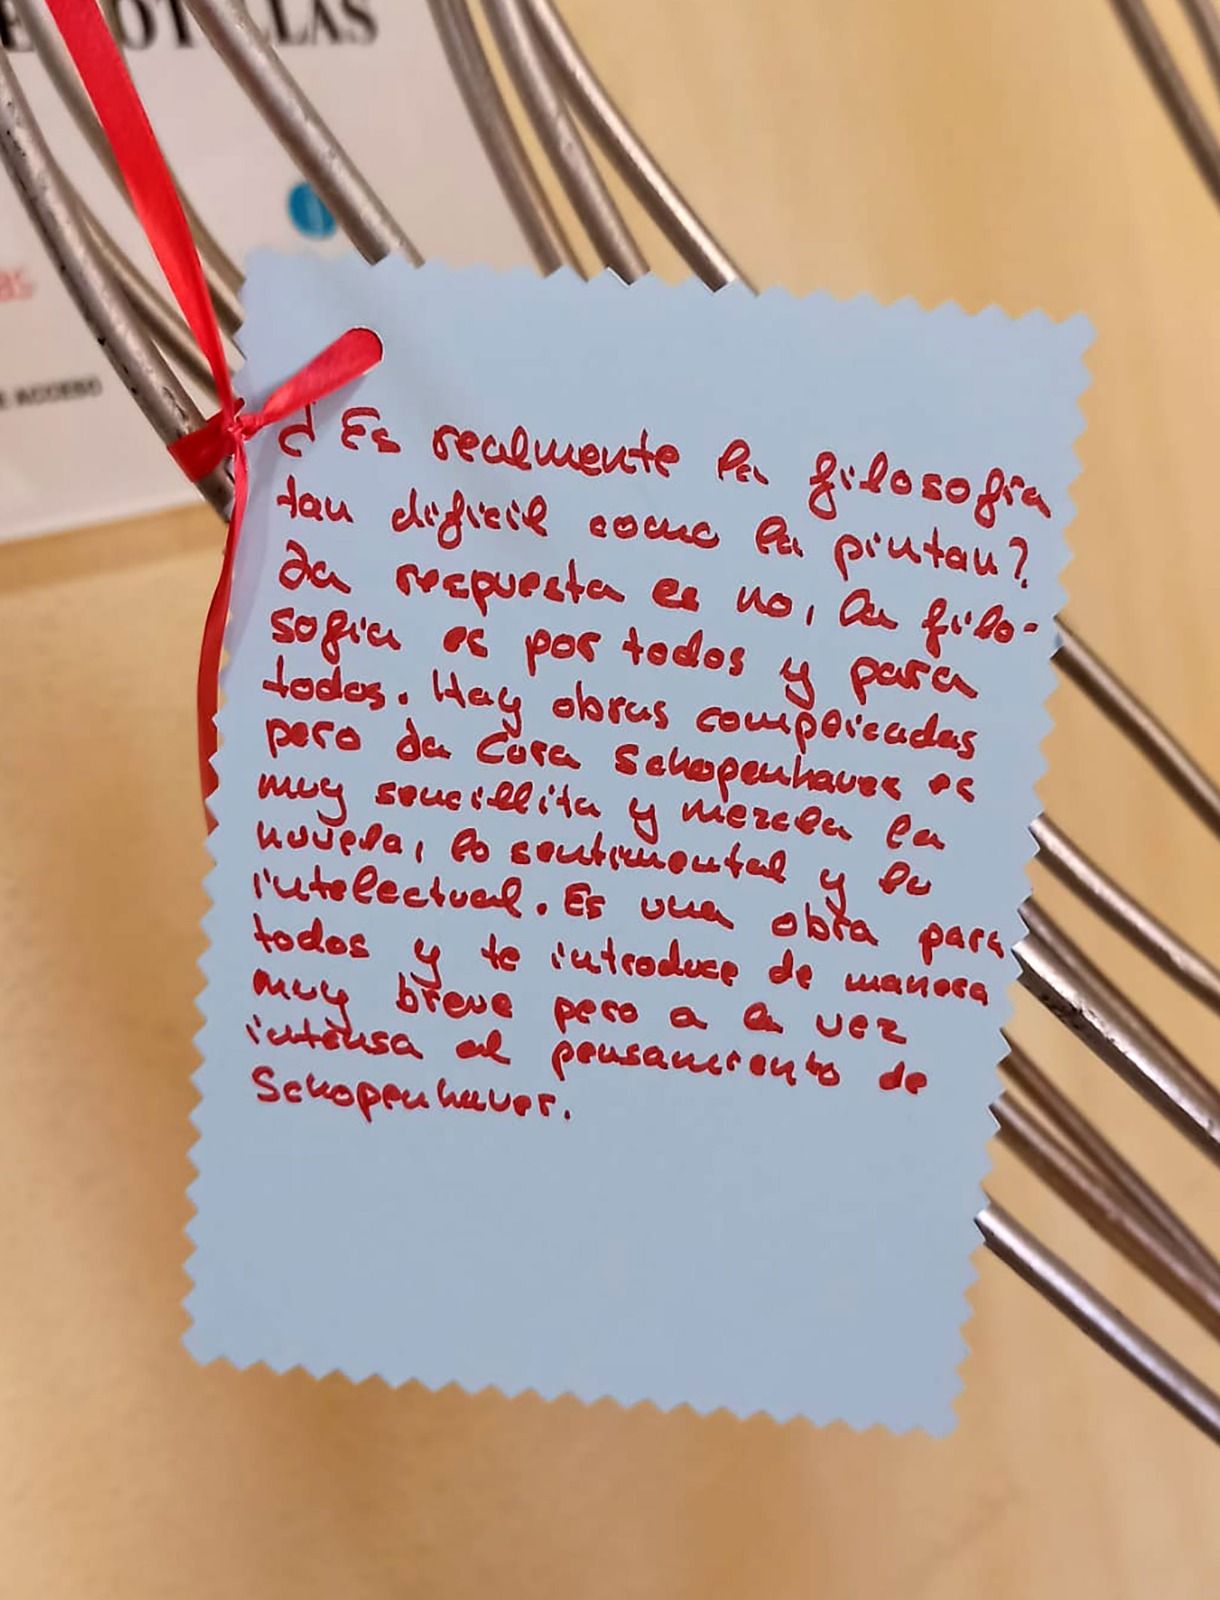 LAS
E ACCESO
¿Es realmente la filosofía
tan difícil como la pintan?
La respuesta es no, la filo-
sofía es por todos y para
todos. Hay obras complicadas
pero La Cura Schopenhauer es
muy sencillita y mezcla la
novela, lo sentimental y lo
intelectual. Es una obra para
todos y te introduce de manera
muy breve pero a la vez
intensa al pensamiento de
Schopenhauer.